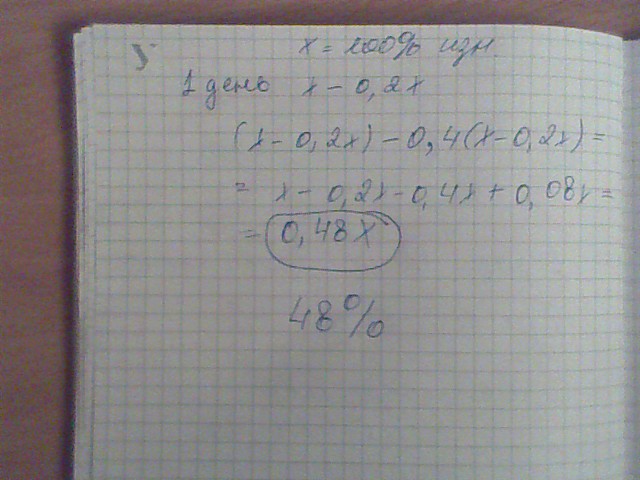 x = 100% изн.
1 день x - 0,2x
(x - 0,2x) - 0,4(x - 0,2x) =
= x - 0,2x - 0,4x + 0,08x =
= 0,48x
48%